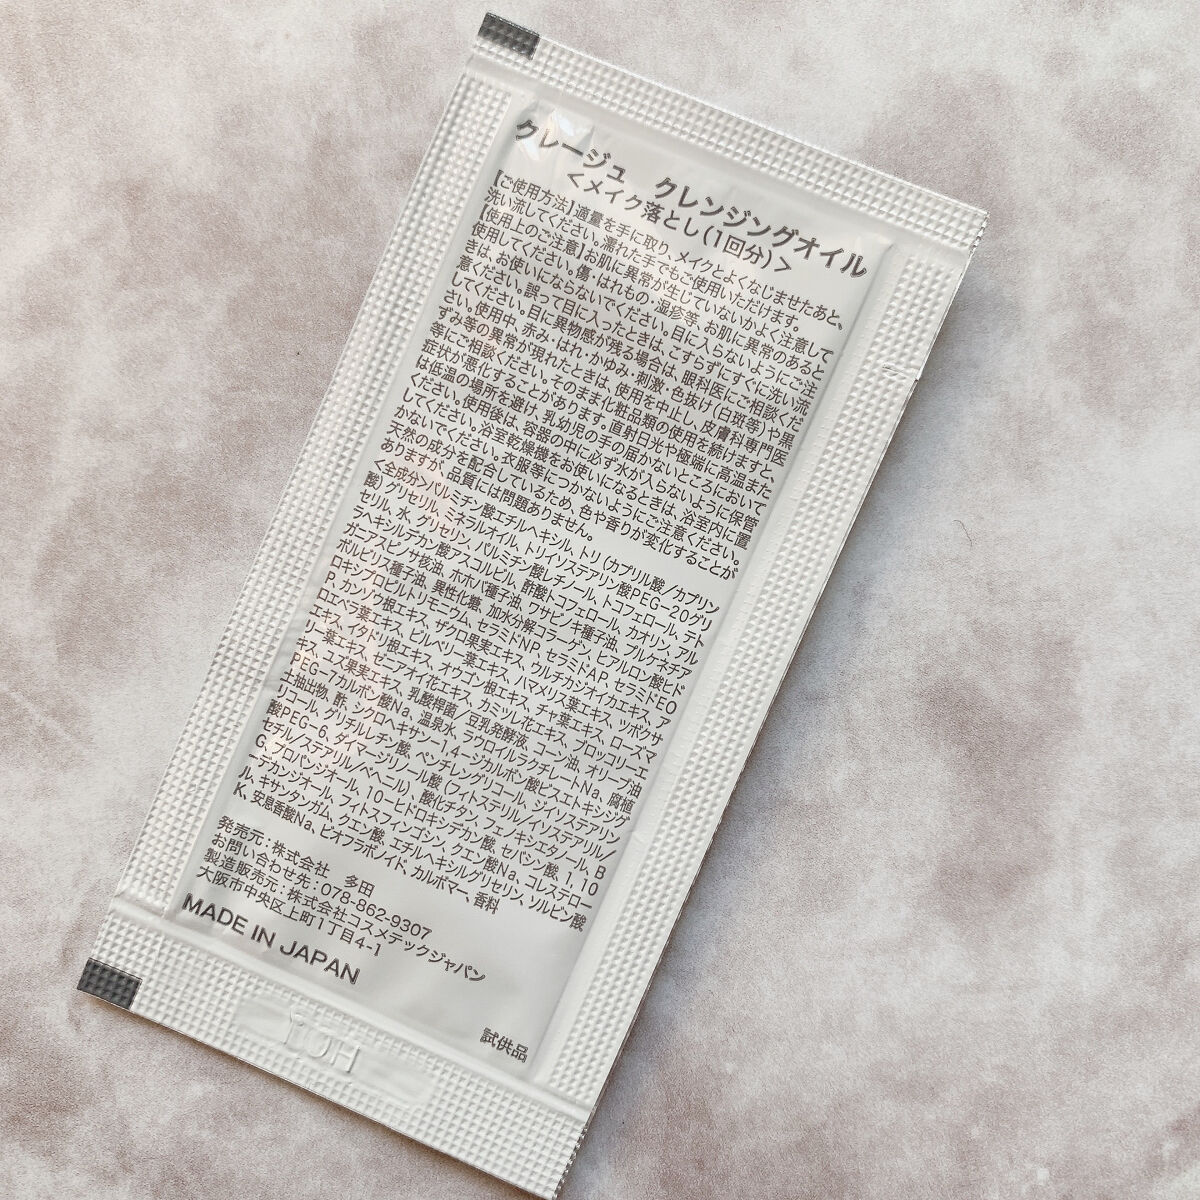 クレージュ クレンジングオイル
<メイク落とし(1回分)>
【ご使用方法】適量を手に取り、メイクとよくなじませたあと、
洗い流してください。濡れた手でもご使用いただけます。
【使用上のご注意】お肌に異常が生じていないかよく注意して
使用してください。傷・はれもの・湿疹等、お肌に異常のあると
きは、お使いにならないでください。目に入らないようにご注
意ください。誤って目に入ったときは、こすらずにすぐに洗い流
してください。目に異物感が残る場合は、眼科医にご相談くだ
さい。使用中、赤み・はれ・かゆみ・刺激・色抜け(白斑等)や黒
ずみ等の異常が現れたときは、使用を中止し、皮膚科専門医
等にご相談ください。そのまま化粧品類の使用を続けますと、
症状が悪化することがあります。直射日光や極端に高温また
は低温の場所を避け、乳幼児の手の届かないところにおいて
ください。使用後は、容器の中に必ず水が入らないように保管
してください。浴室乾燥機をお使いになるときは、浴室内に置
かないでください。衣服等につかないようにご注意ください。
天然の成分を配合しているため、色や香りが変化することが
ありますが、品質には問題ありません。
<全成分>パルミチン酸エチルヘキシル、トリ(カプリル酸/カプリン
酸)グリセリル、ミネラルオイル、トリイソステアリン酸PEG-20グリ
セリル、水、グリセリン、パルミチン酸レチノール、トコフェロール、テト
ラヘキシルデカン酸アスコルビル、酢酸トコフェロール、カオリン、アル
ガニアスピノサ核油、ホホバ種子油、ワサビノキ種子油、プルケネチア
ボルビリス種子油、異性化糖、加水分解コラーゲン、ヒアルロン酸ヒド
ロキシプロピルトリモニウム、セラミドNP、セラミドAP、セラミドEO
P、カンゾウ根エキス、ザクロ果実エキス、ウルチカジオイカエキス、ア
ロエベラ葉エキス、ビルベリー葉エキス、ハマメリス葉エキス、ツボクサ
エキス、イタドリ根エキス、オウゴン根エキス、チャ葉エキス、ローズマ
リー葉エキス、ゼニアオイ花エキス、カミツレ花エキス、ブロッコリーエ
キス、ユズ果実エキス、乳酸桿菌/豆乳発酵液、コーン油、オリーブ油
PEG-7カルボン酸Na、温泉水、ラウロイルラクチレートNa、腐植
土抽出物、酢、シクロヘキサン-1,4-ジカルボン酸ビスエトキシジグ
リコール、グリチルレチン酸、ペンチレングリコール、ジイソステアリン
酸PEG-6、ダイマージリノール酸(フィトステリル/イソステアリル/
セチル/ステアリル/ベヘニル)、酸化チタン、フェノキシエタノール、B
G、プロパンジオール、10-ヒドロキシデカン酸、セバシン酸、1,10
-デカンジオール、フィトスフィンゴシン、クエン酸Na、コレステロー
ル、キサンタンガム、クエン酸、エチルヘキシルグリセリン、ソルビン酸
K、安息香酸Na、ビオフラボノイド、カルボマー、香料
発売元:株式会社 多田
お問い合わせ先:078-862-9307
製造販売元:株式会社コスメテックジャパン
大阪市中央区上町1丁目4-1
MADE IN JAPAN
試供品